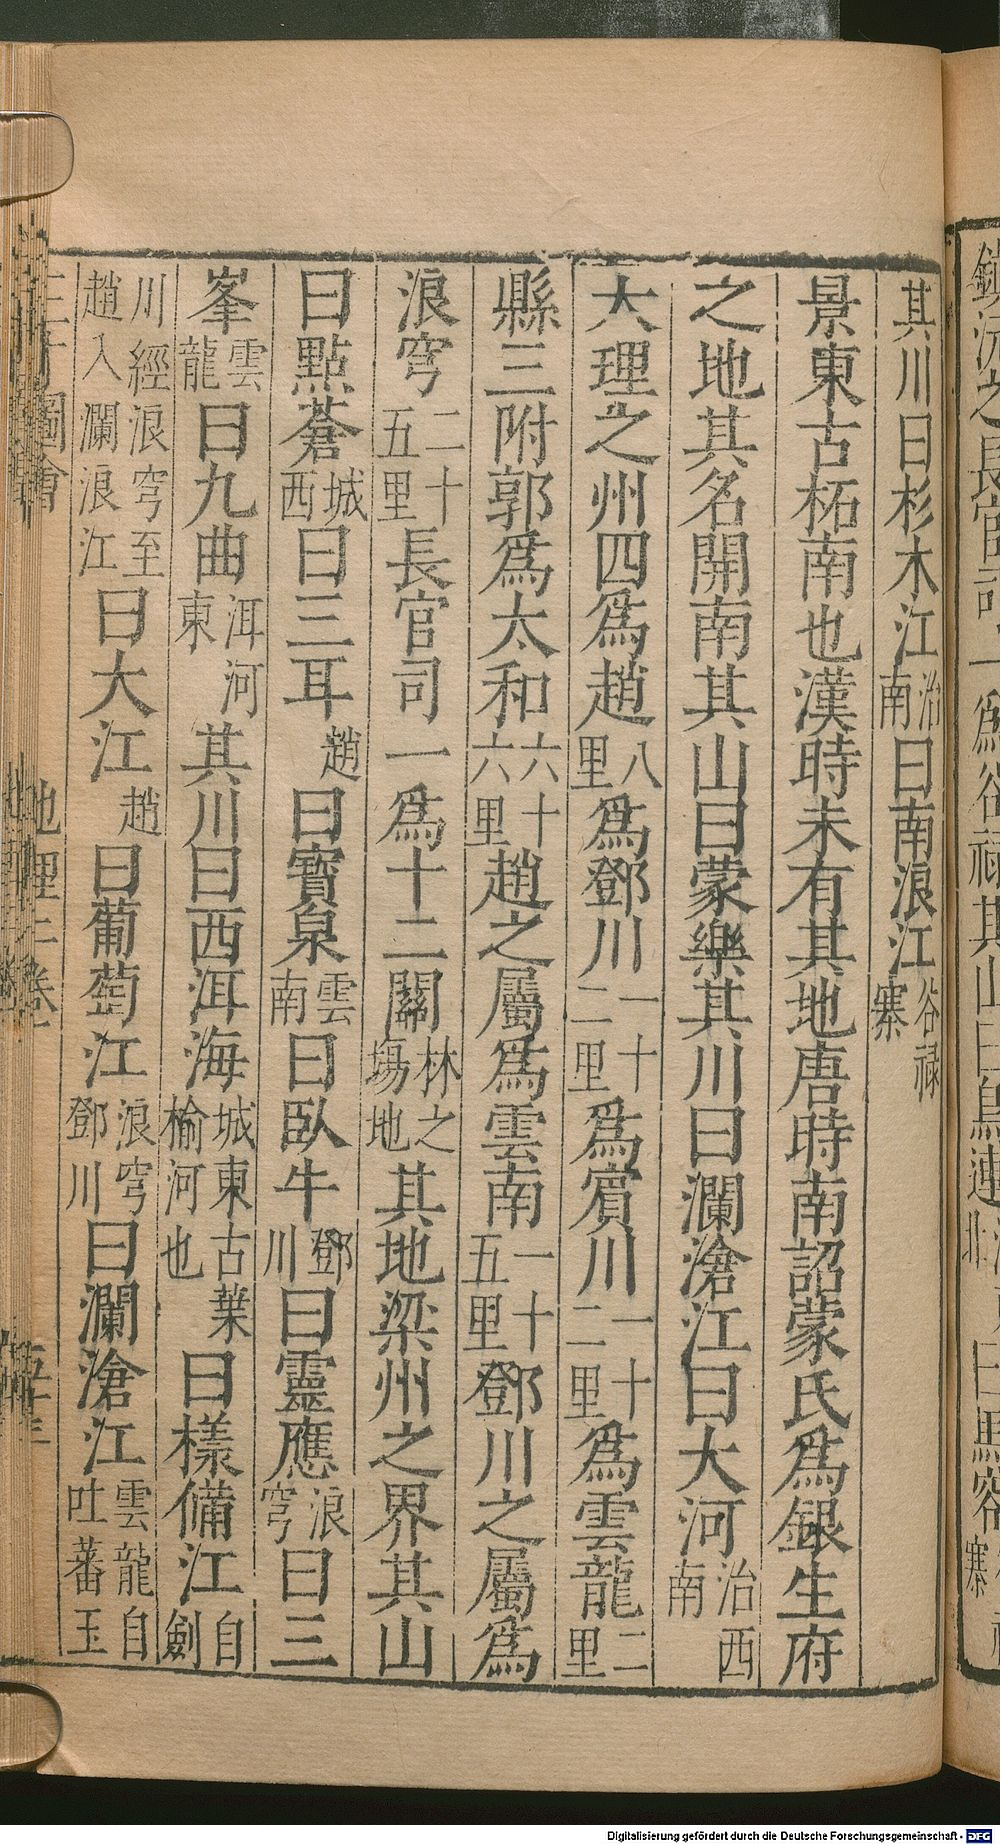 其川曰杉木江治南曰南浪江谷禄寨
景東古柘南也漢時未有其地唐時南詔蒙氏為銀生府
之地其名開南其山曰蒙樂其川曰瀾滄江曰大河治西南
大理之州四爲趙八里爲鄧川一十二里爲賓川一十二里爲雲龍二里
縣三附郭爲太和六十六里趙之屬爲雲南一十五里鄧川之屬爲
浪穹二十五里長官司一爲十二關林之塲地其地梁州之界其山
曰點蒼城西曰三耳趙曰寶泉雲南曰臥牛鄧川曰靈應浪穹曰三
峯雲龍曰九曲洱河東其川曰西洱海城東古葉榆河也曰樣備江自劍
川經浪穹至趙入瀾浪江曰大江趙曰葡萄江浪穹鄧川曰瀾滄江雲龍自吐蕃玉
地理三卷
Digitalisierung gefördert durch die Deutsche Forschungsgemeinschaft - DFG